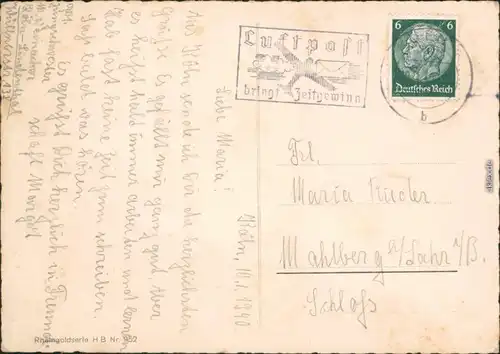 Köln, 10.1.1940
Liebe Maria!
Aus Köln sende ich Dir die herzlichsten
Grüße. Es gefällt mir ganz gut. Aber
es heißt halt immer arbeiten und lernen
Hab fast keine Zeit zum schreiben.
Laß bald was hören.
Es grüßt Dich herzlich in Freund-
schaft Margot
Luftpost
bringt Zeitgewinn
6 6
Deutsches Reich
b
Frl.
Maria
Mahlberg a/Lahr i/B.
Schloß
Rheingoldserie H B Nr. 902